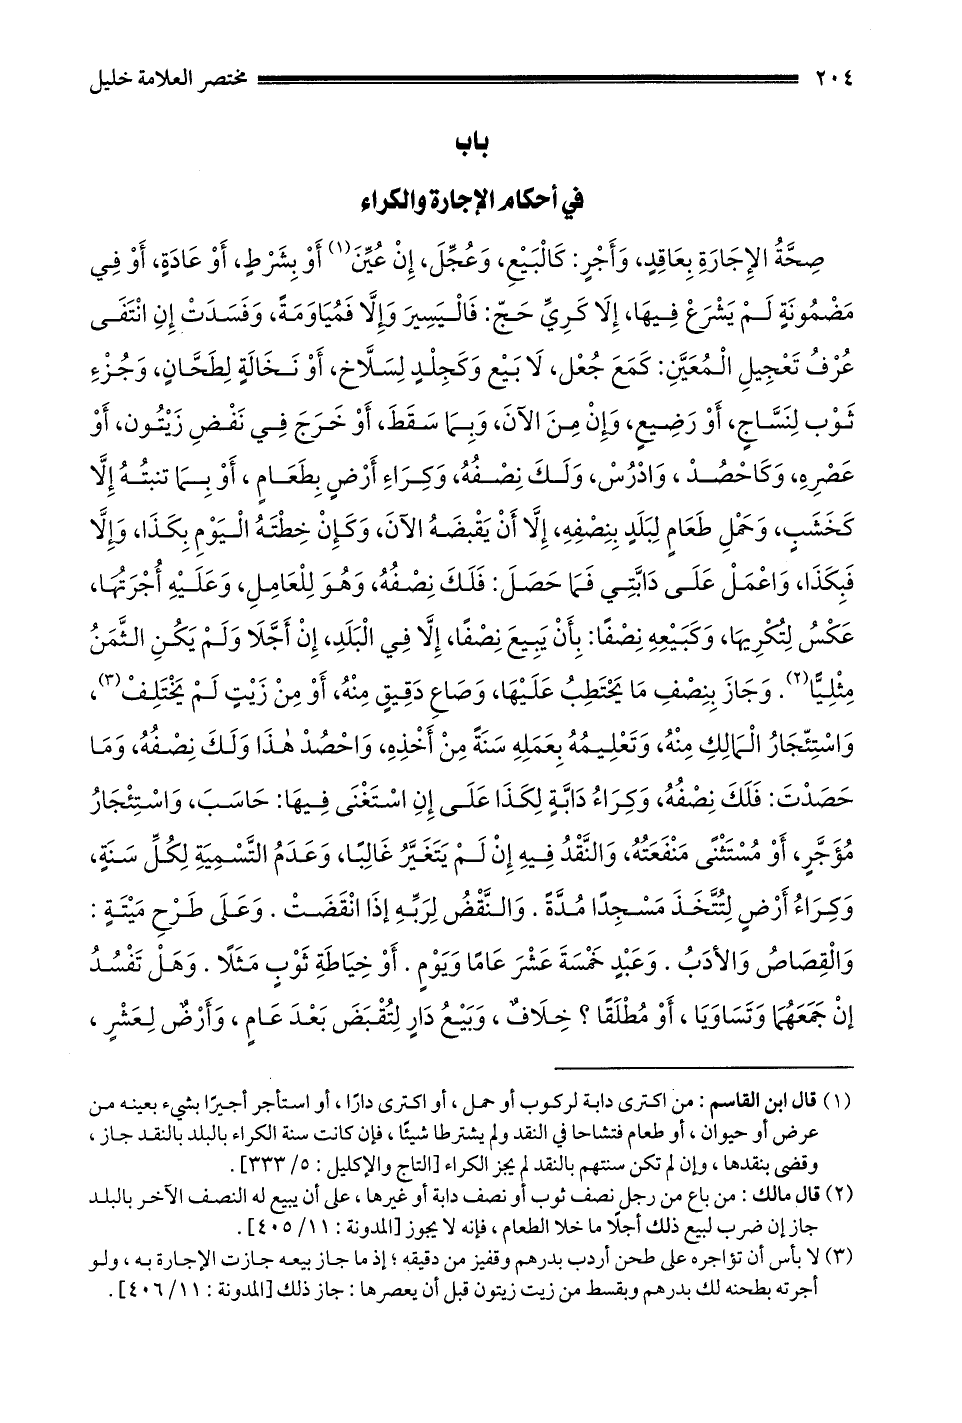 ٢٠٤ مختصر العلامة خليل
باب
في أحكام الإجارة والكراء
صِحَّةُ الإِجَارَةِ بِعَاقِدٍ، وَأَجْرٍ: كَالْبَيْعِ، وَعُجِّلَ، إِنْ عُيِّنَ(١) أَوْ بِشَرْطٍ، أَوْ عَادَةٍ، أَوْ فِي
مَضْمُونَةٍ لَمْ يَشْرَعْ فِيهَا، إِلَّا كَرِيِّ حَجٍّ: فَالْيَسِيرَ وَإِلَّا فَمُيَاوَمَةً، وَفَسَدَتْ إِنِ انْتَفَى
عُرْفُ تَعْجِيلِ الْمُعَيَّنِ: كَمَعَ جُعْلٍ، لَا بَيْعٍ وَكَجِلْدٍ لِسَلَّاخٍ، أَوْ نَخَالَةٍ لِطَحَّانٍ، وَجُزْءِ
ثَوْبٍ لِنَسَّاجٍ، أَوْ رَضِيعٍ، وَإِنْ مِنَ الآنَ، وَبِمَا سَقَطَ، أَوْ خَرَجَ فِي نَفْضِ زَيْتُونٍ، أَوْ
عَصْرِهِ، وَكَاحْصُدْ ، وَادْرُسْ، وَلَكَ نِصْفُهُ، وَكِرَاءِ أَرْضٍ بِطَعَامٍ ، أَوْ بِمَا تنبتُهُ إِلَّا
كَخَشَبٍ، وَحَمْلِ طَعَامٍ لِبَلَدٍ بِنِصْفِهِ، إِلَّا أَنْ يَقْبِضَهُ الآنَ، وَكَإِنْ خِطْتَهُ الْيَوْمَ بِكَذَا، وَإِلَّا
فَبِكَذَا، وَاعْمَلْ عَلَى دَابَّتِي فَمَا حَصَلَ: فَلَكَ نِصْفُهُ، وَهُوَ لِلْعَامِلِ، وَعَلَيْهِ أُجْرَتُهَا،
عَكْسُ لِتُكْرِيهَا، وَكَبَيْعِهِ نِصْفًا: بِأَنْ يَبِيعَ نِصْفًا، إِلَّا فِي الْبَلَدِ، إِنْ أَجَّلَا وَلَمْ يَكُنِ الثَّمَنُ
مِثْلِيًّا(٢). وَجَازَ بِنِصْفِ مَا يَحْتَطِبُ عَلَيْهَا، وَصَاعِ دَقِيقٍ مِنْهُ، أَوْ مِنْ زَيْتٍ لَمْ يَخْتَلِفْ(٣)،
وَاسْتِئْجَارُ الْمَالِكِ مِنْهُ، وَتَعْلِيمُهُ بِعَمَلِهِ سَنَةً مِنْ أَخْذِهِ، وَاحْصُدْ هٰذَا وَلَكَ نِصْفُهُ، وَمَا
حَصَدْتَ: فَلَكَ نِصْفُهُ، وَكِرَاءُ دَابَّةٍ لِكَذَا عَلَى إِنِ اسْتَغْنَى فِيهَا: حَاسَبَ، وَاسْتِئْجَارُ
مُؤَجَّرٍ، أَوْ مُسْتَثْنًى مَنْفَعَتُهُ، وَالنَّقْدُ فِيهِ إِنْ لَمْ يَتَغَيَّرْ غَالِبًا، وَعَدَمُ التَّسْمِيَةِ لِكُلِّ سَنَةٍ،
وَكِرَاءُ أَرْضٍ لِتُتَّخَذَ مَسْجِدًا مُدَّةً . وَالنَّقْضُ لِرَبِّهِ إِذَا انْقَضَتْ . وَعَلَى طَرْحِ مَيْتَةٍ :
وَالْقِصَاصُ وَالأَدَبُ . وَعَبْدٍ خَمْسَةَ عَشْرَ عَامًا وَيَوْمٍ . أَوْ خِيَاطَةِ ثَوْبٍ مَثَلًا . وَهَلْ تَفْسُدُ
إِنْ جَمَعَهُمَا وَتَسَاوَيَا ، أَوْ مُطْلَقًا ؟ خِلَافٌ ، وَبَيْعُ دَارٍ لِتُقْبَضَ بَعْدَ عَامٍ ، وَأَرْضٍ لِعَشْرٍ ،
(١) قال ابن القاسم : من اكترى دابة لركوب أو حمل ، أو اكترى دارًا ، أو استأجر أجيرًا بشيء بعينه من
عرض أو حيوان ، أو طعام فتشاحا في النقد ولم يشترطا شيئًا ، فإن كانت سنة الكراء بالبلد بالنقد جاز ،
وقضى بنقدها ، وإن لم تكن سنتهم بالنقد لم يجز الكراء [التاج والإكليل : ٥/ ٣٣٣] .
(٢) قال مالك : من باع من رجل نصف ثوب أو نصف دابة أو غيرها ، على أن يبيع له النصف الآخر بالبلد
جاز إن ضرب لبيع ذلك أجلًا ما خلا الطعام ، فإنه لا يجوز [المدونة : ١١/ ٤٠٥] .
(٣) لا بأس أن تؤاجره على طحن أردب بدرهم وقفيز من دقيقه ؛ إذ ما جاز بيعه جازت الإجارة به ، ولو
أجرته بطحنه لك بدرهم وبقسط من زيت زيتون قبل أن يعصرها : جاز ذلك [المدونة : ١١/ ٤٠٦] .